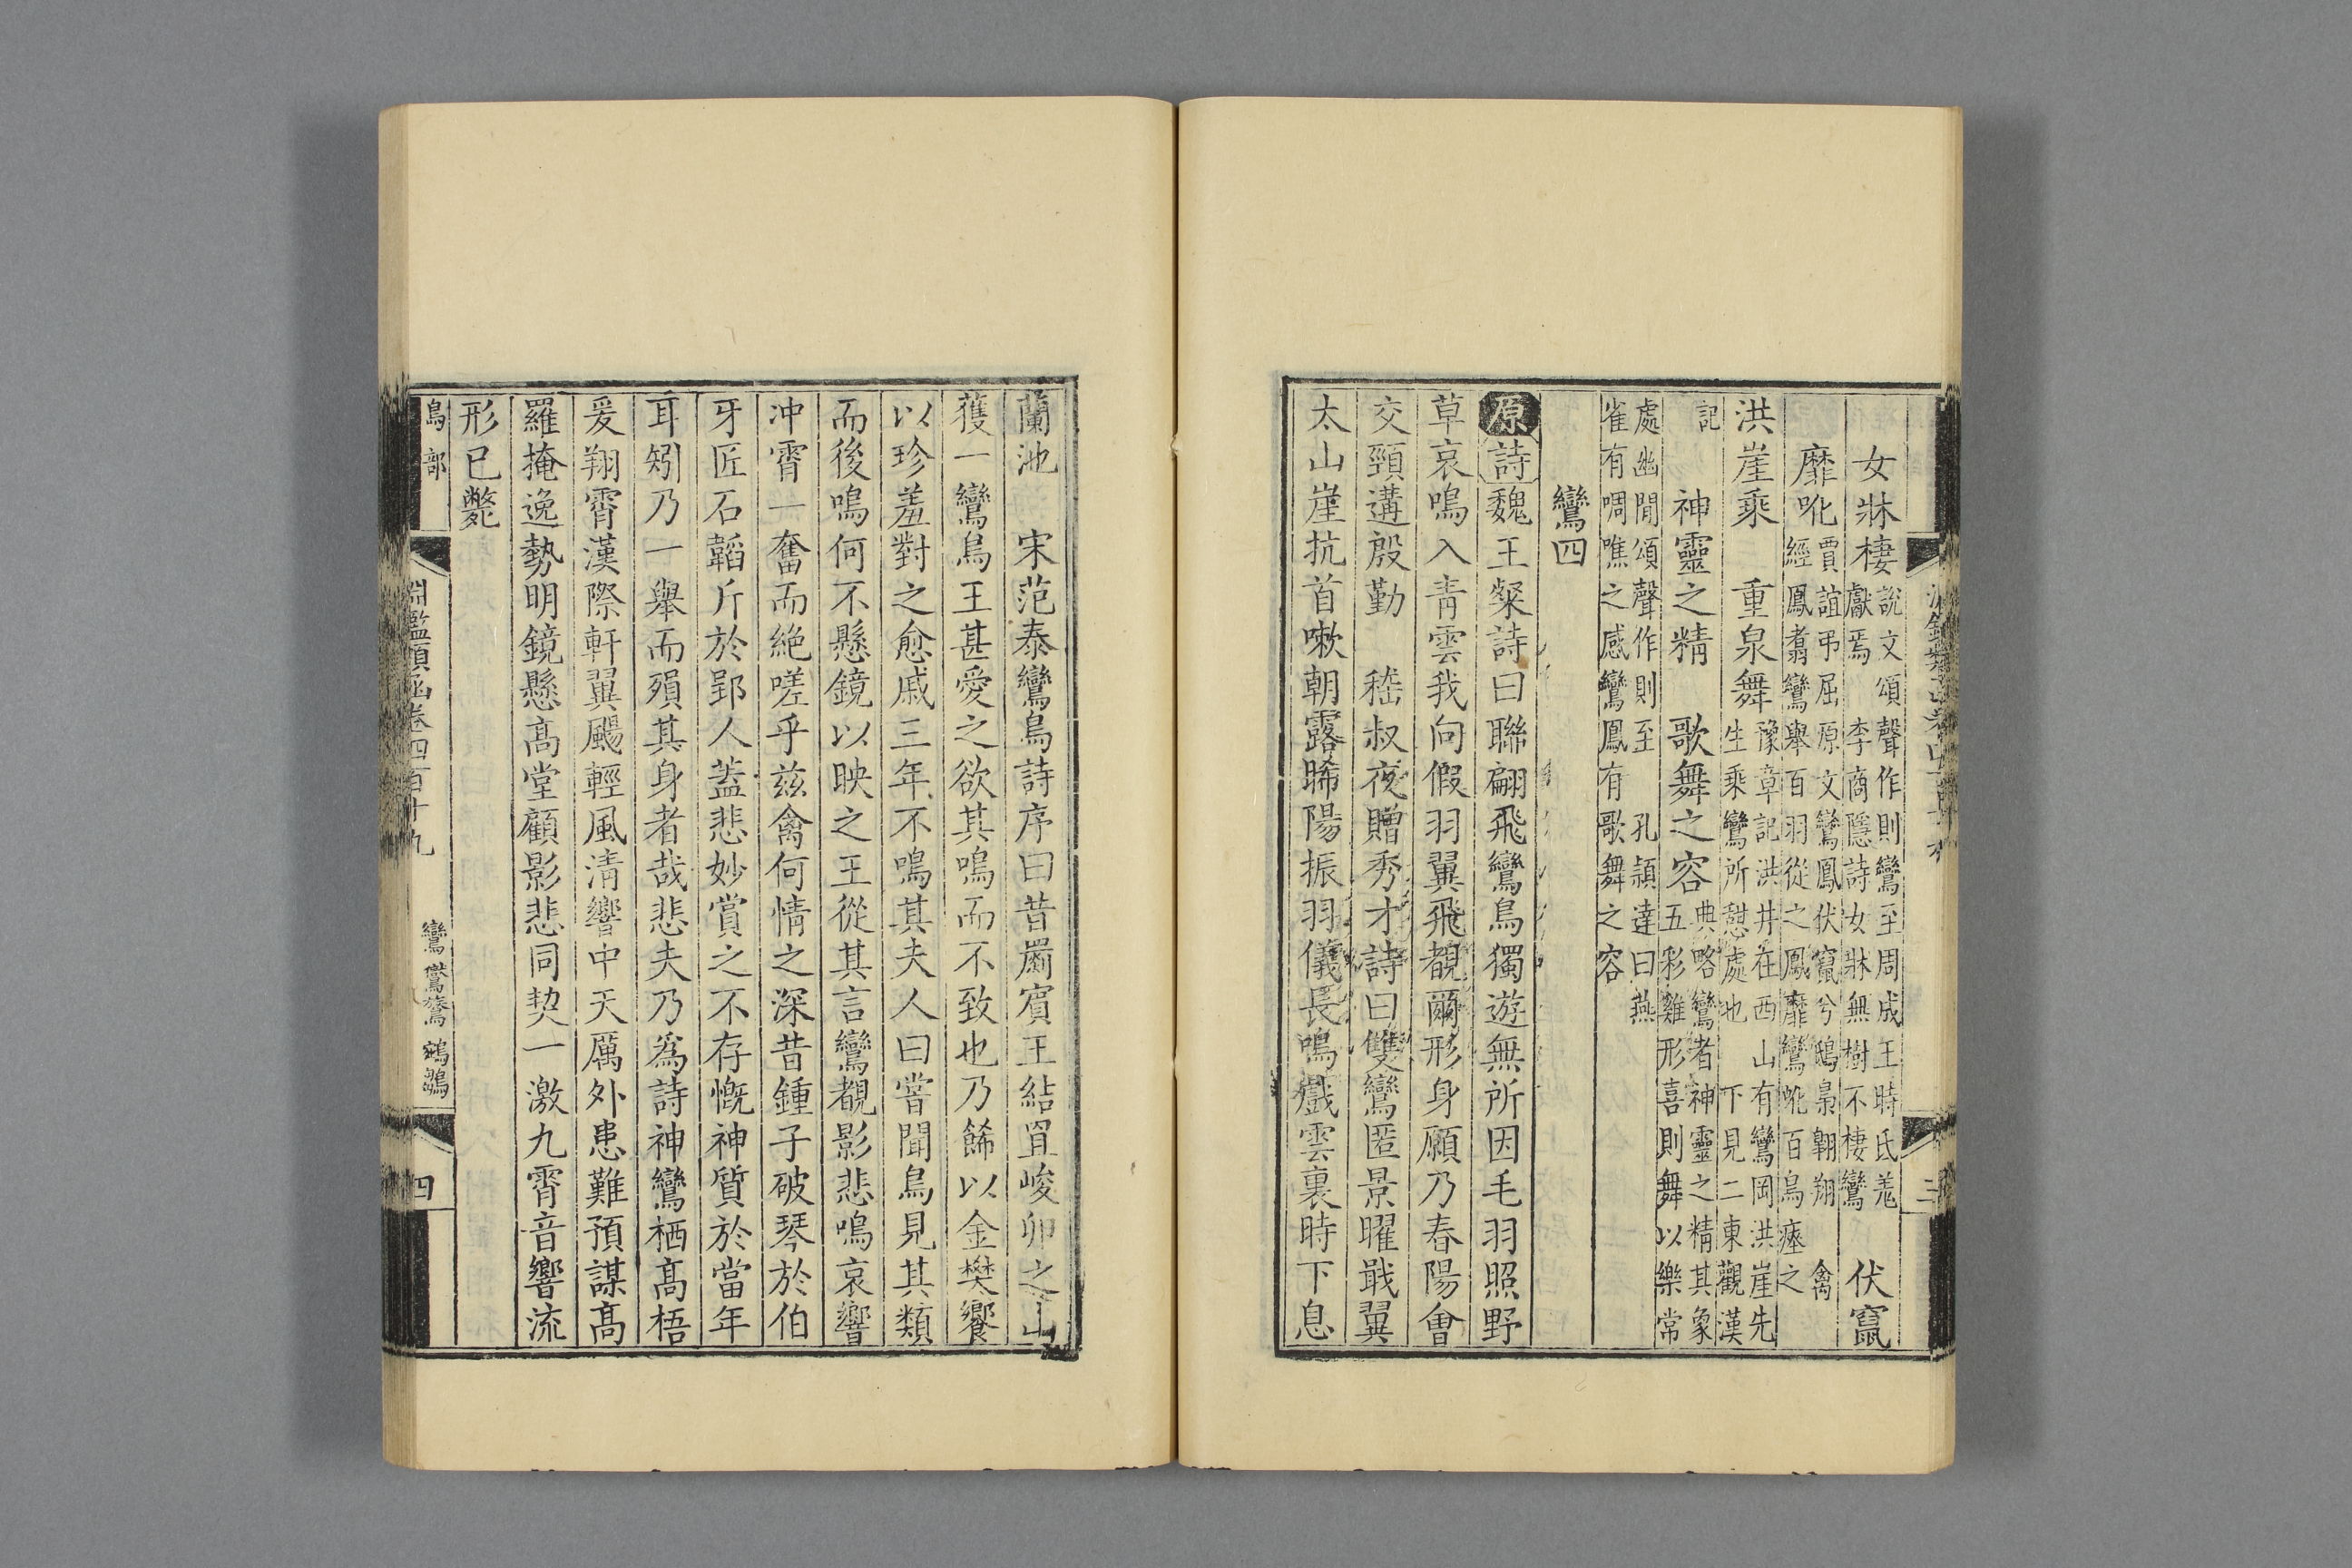 女牀棲 說文頌聲作則鸞至周成王時氐羌獻焉 李商隱詩女牀無樹不棲鸞 伏竄
靡吪 賈誼弔屈原文鸞鳳伏竄兮鴟梟翺翔 禽經鳳翥鸞舉百羽從之鳳靡鸞吪百鳥瘞之
洪崖乘 重泉舞 豫章記洪井在西山有鸞岡洪崖先生乘鸞所憩處也 下見二東觀漢
記 神靈之精 歌舞之容 典略鸞者神靈之精其象五彩雞形喜則舞以樂常
處幽閒頌聲作則至 孔穎達曰燕雀有啁噍之感鸞鳳有歌舞之容
鸞四
原詩魏王粲詩曰聯翩飛鸞鳥獨遊無所因毛羽照野
草哀鳴入青雲我向假羽翼飛覩爾形身願乃春陽會
交頸遘殷勤 嵇叔夜贈秀才詩曰雙鸞匿景曜戢翼
太山崖抗首嗽朝露晞陽振羽儀長鳴戲雲裏時下息
蘭池 宋范泰鸞鳥詩序曰昔罽賓王結罝峻卯之山
獲一鸞鳥王甚愛之欲其鳴而不致也乃餙以金樊饗
以珍羞對之愈戚三年不鳴其夫人曰嘗聞鳥見其類
而後鳴何不懸鏡以映之王從其言鸞覩影悲鳴哀響
冲霄一奮而絶嗟乎兹禽何情之深昔鍾子破琴於伯
牙匠石韜斤於郢人葢悲妙賞之不存慨神質於當年
耳矧乃一舉而殞其身者哉悲夫乃爲詩神鸞栖髙梧
爰翔霄漢際軒翼颺輕風清響中天厲外患難預謀髙
羅掩逸勢明鏡懸髙堂顧影悲同契一激九霄音響流
形已斃
鳥部 淵鑑類函卷四百十九 鸞 鸑鷟 鵷鶵 四